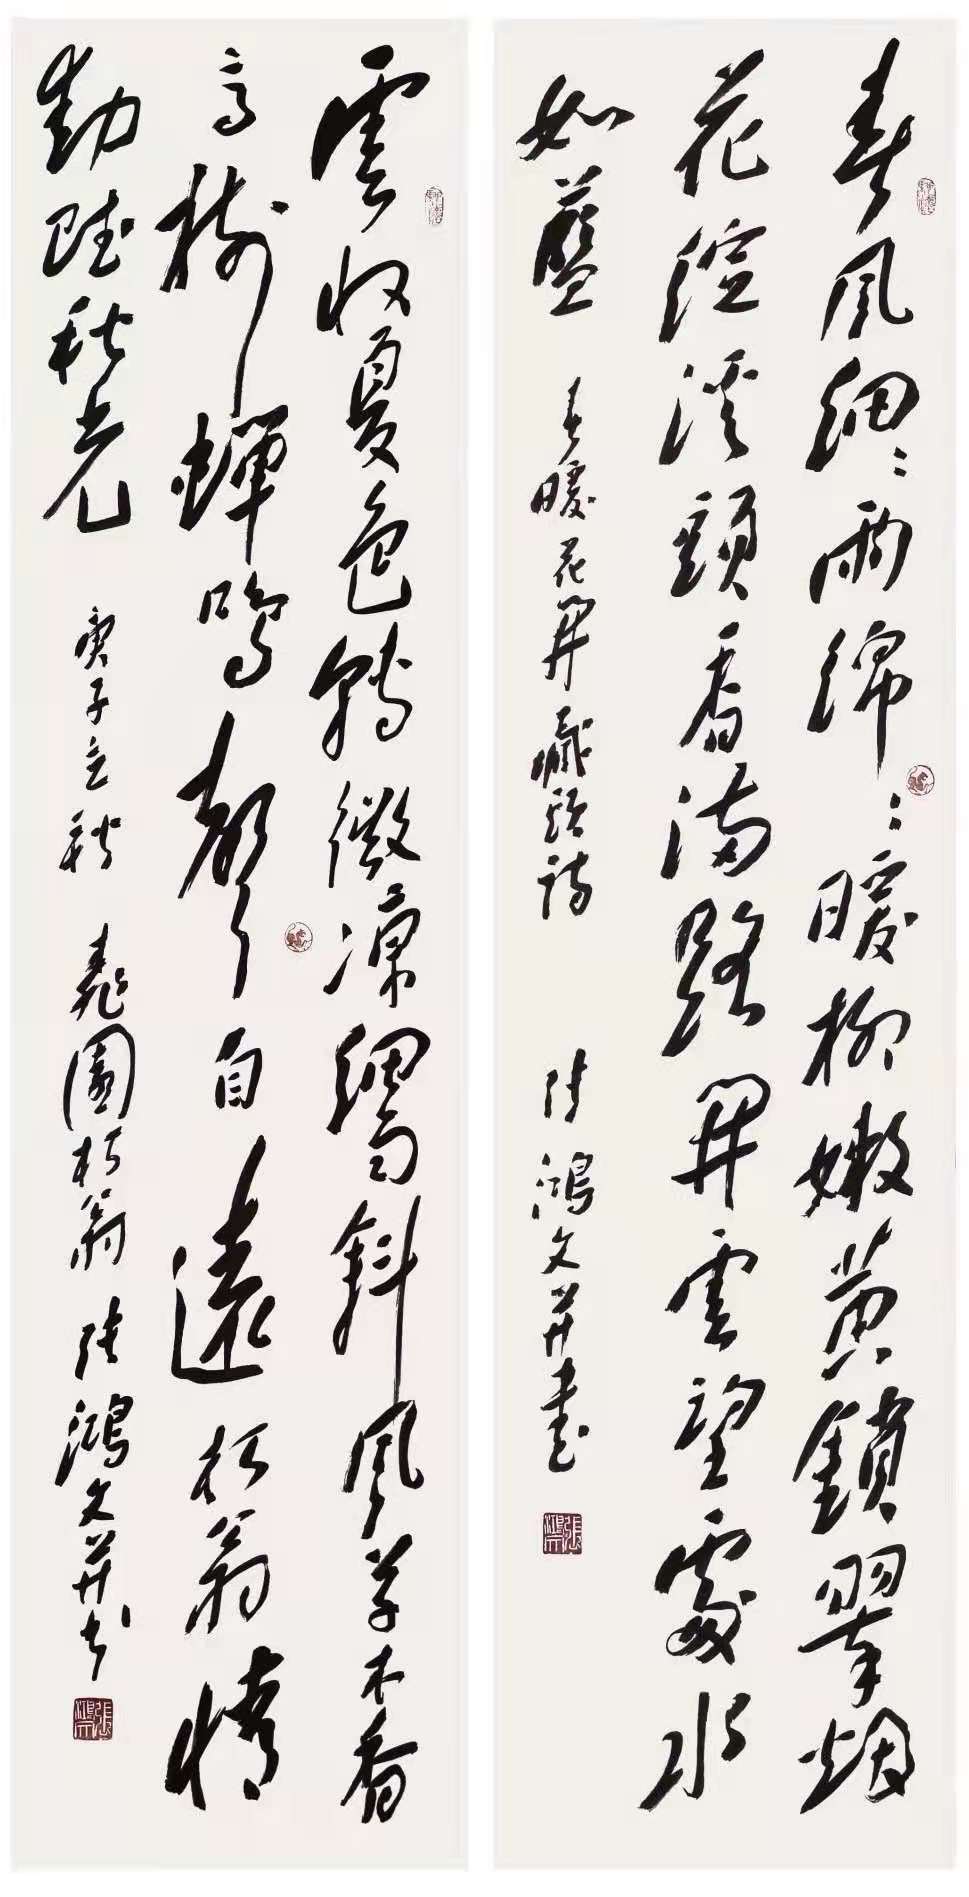 春風細〻雨綿〻暖柳嫩黃鎖翠烟
花綻溪頭香滿路開雲望處水
如藍 春暖花開藏頭詩 張鴻文并書
雲收夏色轉微涼細雨斜風草木香
高樹蟬鳴聲自遠朽翁情
動賦秋光 庚子立秋 園朽翁 張鴻文并书